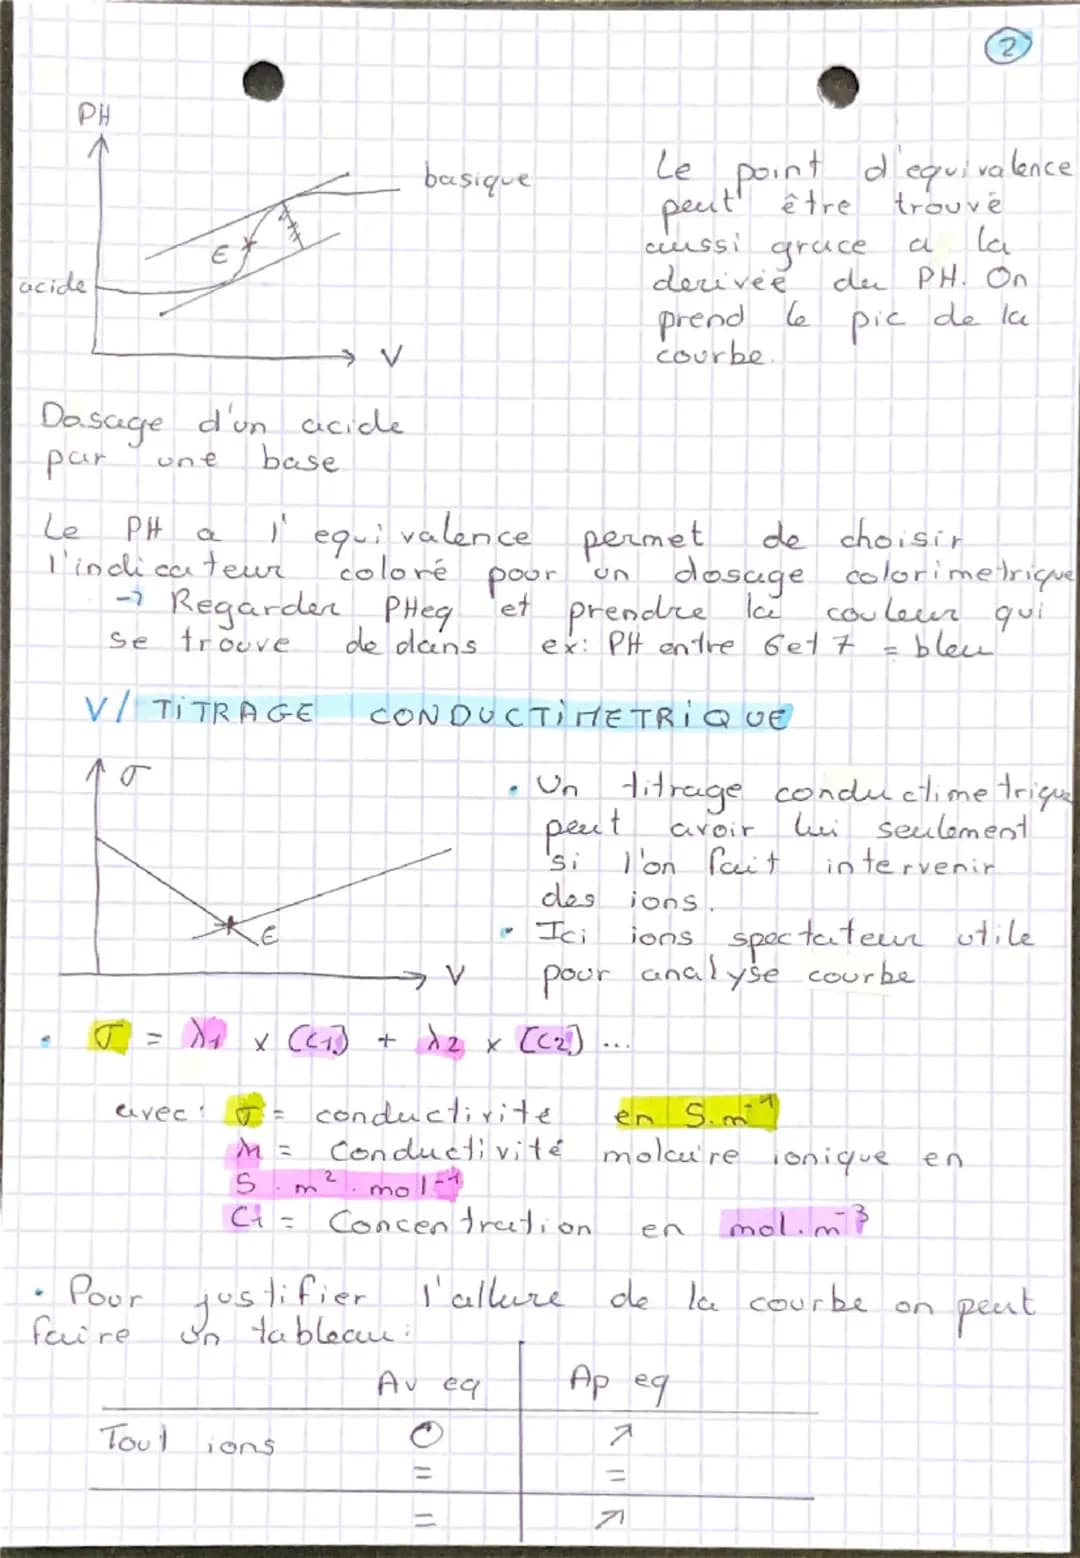 2
PH
basique
E
acide
V
Le point d'equivalence
peut être trouvé
aussi grace a la
derivée du PH. On
prend le pic de la
courbe.
Dosage d'un acide
par une base
Le PH a l'equivalence permet de choisir
l'indicateur coloré pour un dosage colorimetrique
→ Regarder PHeq et prendre la couleur qui
se trouve de dans ex: PH entre 6 et 7 = bleu
V/ TITRAGE CONDUCTIMETRIQUE
σ
E
V
• Un titrage conductimetrique
peut avoir lui seulement
si l'on fait intervenir
des ions.
• Ici ions spectateur utile
pour analyse courbe
• σ = λ1 × [C1] + λ2 × [C2] ...
avec: σ = conductivité en S.m⁻¹
= Conductivité molaire ionique en
S.m².mol⁻¹
Ci = Concentration en mol.m⁻³
• Pour justifier l'allure de la courbe on peut
faire un tableau:
Av eq Ap eq
Tout ions 0 ↗
= =
= ↗